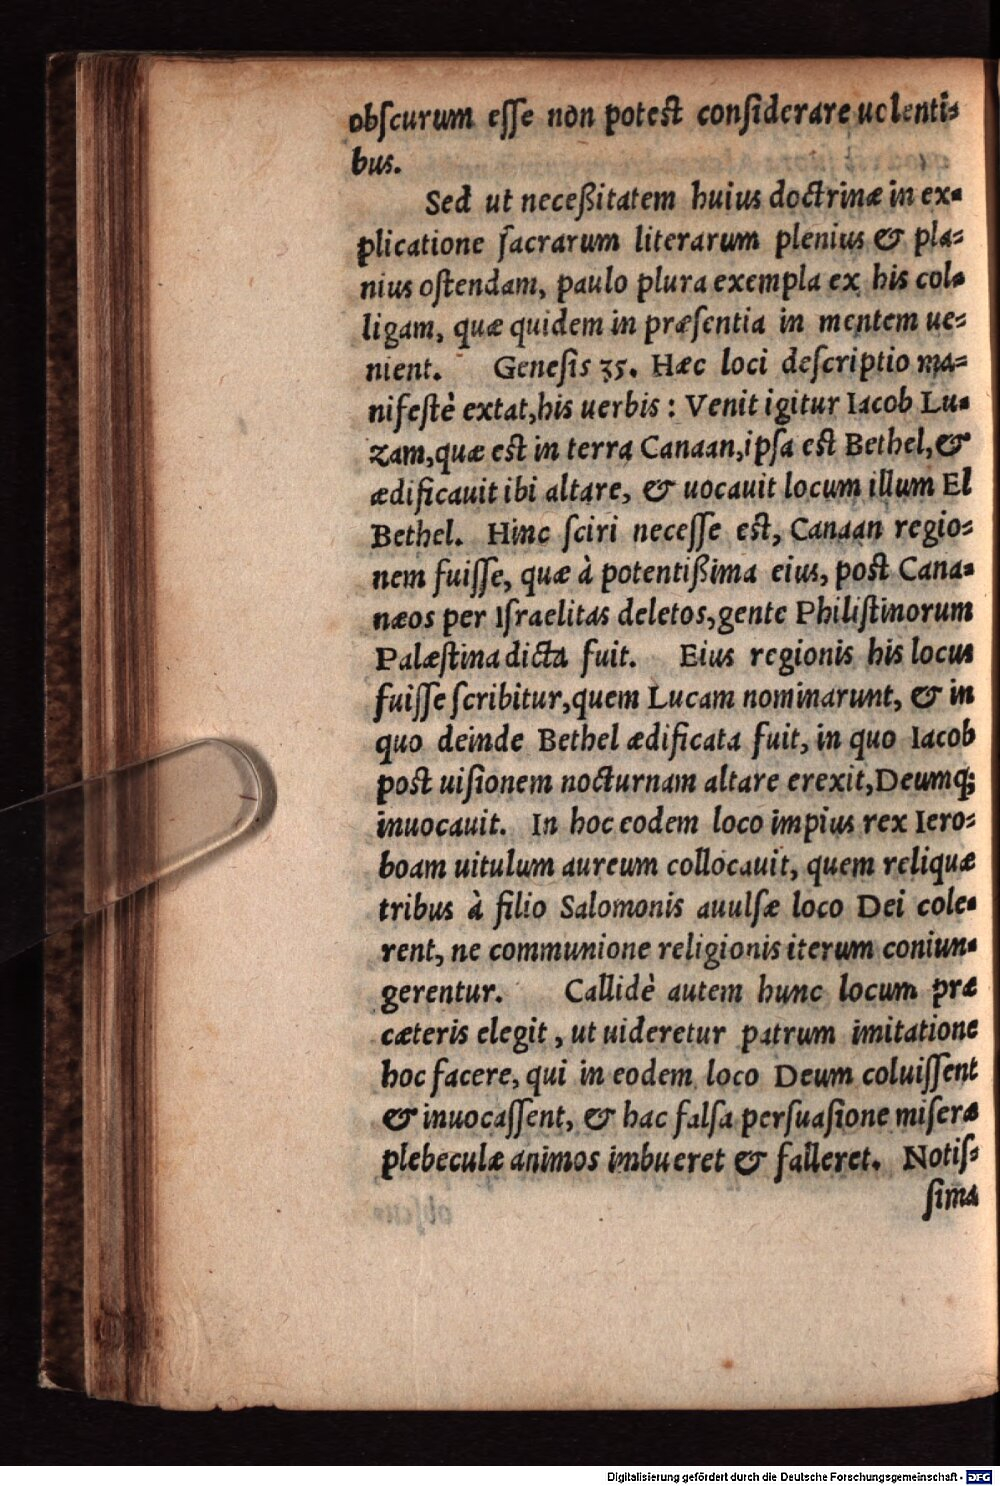 obſcurum eſſe non poteſt conſiderare uolenti⸗
bus.
Sed ut neceßitatem huius doctrinæ in ex⸗
plicatione ſacrarum literarum plenius & pla⸗
nius oſtendam, paulo plura exempla ex his col⸗
ligam, quæ quidem in præſentia in mentem ue⸗
nient. Geneſis 35. Hæc loci deſcriptio ma⸗
nifeſtè extat, his uerbis : Venit igitur Iacob Lu⸗
zam, quæ eſt in terra Canaan, ipſa eſt Bethel, &
ædificauit ibi altare, & uocauit locum illum El
Bethel. Hinc ſciri neceſſe eſt, Canaan regio⸗
nem fuiſſe, quæ à potentißima eius, poſt Cana⸗
næos per Iſraelitas deletos, gente Philiſtinorum
Palæſtina dicta fuit. Eius regionis his locus
fuiſſe ſcribitur, quem Lucam nominarunt, & in
quo deinde Bethel ædificata fuit, in quo Iacob
poſt uiſionem nocturnam altare erexit, Deumq́;
inuocauit. In hoc eodem loco impius rex Iero⸗
boam uitulum aureum collocauit, quem reliquæ
tribus à filio Salomonis auulſæ loco Dei cole⸗
rent, ne communione religionis iterum coniun⸗
gerentur. Callidè autem hunc locum præ
cæteris elegit, ut uideretur patrum imitatione
hoc facere, qui in eodem loco Deum coluiſſent
& inuocaſſent, & hac falſa perſuaſione miſeræ
plebeculæ animos imbueret & falleret. Notiſ⸗
ſima
Digitalisierung gefördert durch die Deutsche Forschungsgemeinschaft - DFG